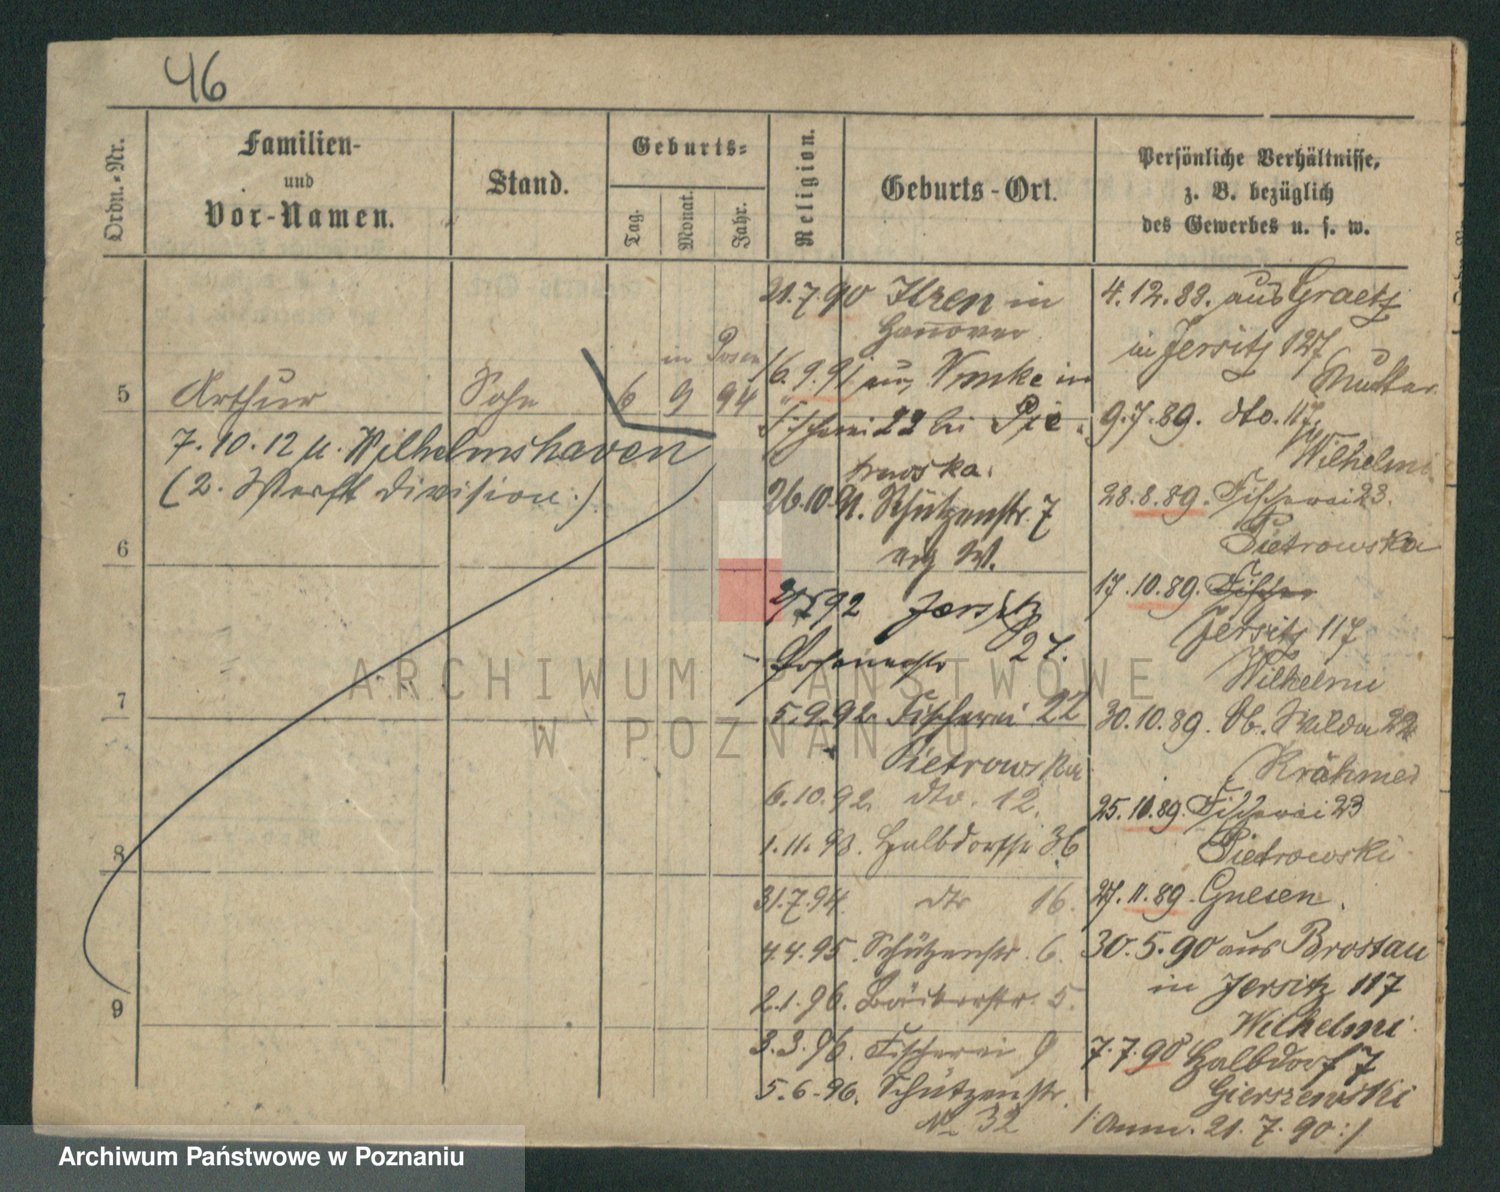 46
Ordn.-Nr.
Familien-
und
Vor-Namen.
Stand.
Geburts-
Tag.
Monat.
Jahr.
Religion.
Geburts-Ort.
Persönliche Verhältnisse,
z. B. bezüglich
des Gewerbes u. s. w.
in Posen
5 Arthur Sohn 6 9 94
7.10.12 n. Wilhelmshaven
(2. Werft division.)
6
7
8
9
21.7.90 in
Hannover
16.9.91. aus in
Fischerei 22 bei Pie-
trowska.
26.10.91. Schützenstr. 7
W.
92 Jersitz
27.
5.9.92. Fischerei 22
Pietrowska
6.10.92. dto. 12.
1.11.93. Halbdorfstr 36
31.7.94. dto 16.
4.4.95. Schützenstr. 6.
2.1.96. Bäckerstr. 5.
3.3.96. Fischerei 9
5.6.96. Schützenstr.
No 32
4.12.88. aus Graetz
in Jersitz 127
Mutter
9.7.89. dto. 117
Wilhelmi
28.8.89. Fischerei 23.
Pietrowska
17.10.89. Fischer
Jersitz 117
Wilhelmi
30.10.89. Ob. Wilda 22
Krähmer
25.11.89. Fischerei 23
Pietrowski
27.11.89. Gnesen.
30.5.90 aus Brostau
in Jersitz 117
Wilhelmi.
7.7.90 Halbdorf 7
Gierszewski
/: Anm. 21.7.90 :/
ARCHIWUM PAŃSTWOWE
W POZNANIU
Archiwum Państwowe w Poznaniu